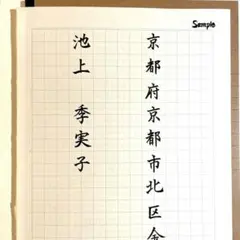 Sample
京都府京都市北区金
池上 季実子